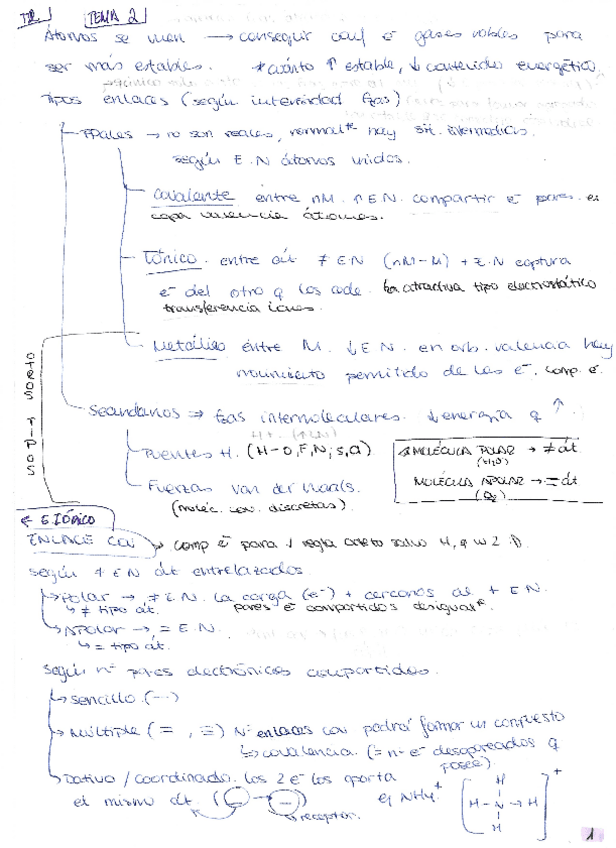 TEMA 2
Átomos se unen → conseguir conf e⁻ gases nobles para
ser más estables. * cuánto ↑ estable, ↓ contenido energético
Tipos enlaces (según intensidad fzas)
PPales → no son reales, normal* hay sit. intermedias.
según E.N átomos unidos.
Covalente entre nM. ↑ E.N. compartir e⁻ pares. en
capa valencia átomos.
Iónico. entre át ≠ EN (nM-M) + E.N captura
e⁻ del otro q los cede. fza atractiva tipo electrostático
transferencia iones.
Metálico entre M. ↓ E N. en orb. valencia hay
movimiento permitido de los e⁻. comp. e⁻
OTROS TIPOS
Secundarios → fzas intermoleculares. ↓ energía q ↑
Puentes H. (H-O, F, N; S, Cl)
MOLÉCULA POLAR → ≠ át.
(H₂O)
Fuerzas van der Waals.
MOLÉCULA APOLAR → = át
(O₂)
(moléc. cov. discretas)
← E. IÓNICO
ENLACE COV → comp e⁻ para √ regla octeto salvo H, q w 2
según ≠ EN át entrelazados.
Polar → ≠ E.N. la carga (e⁻) + cercanos al + E N.
↳ ≠ tipo át. pares e⁻ compartidos desigual*.
Apolar → = E.N.
↳ = tipo át.
según nº pares electrónicos compartidos.
↳ sencillo. (-)
↳ Múltiple (=, ≡) Nº enlaces cov podrá formar un compuesto
↳ covalencia. (= nº e⁻ desapareados q
posee)
↳ Dativo / coordinado. los 2 e⁻ los aporta
el mismo át. ej NH₄⁺
receptor.
H
H - N → H
H
+
1